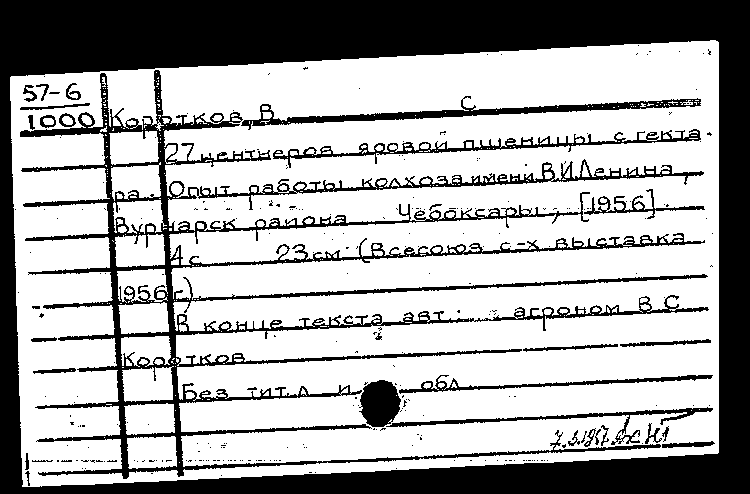 57-6
1000 Коротков, В С
27 центнеров яровой пшеницы с гекта-
ра. Опыт работы колхоза имени В.И.Ленина,
Вурнарск района Чебоксары, [1956].
4с 23см (Всесоюз с-х выставка
1956 г.).
В конце текста авт.: агроном В.С.
Коротков
Без тит.л и обл